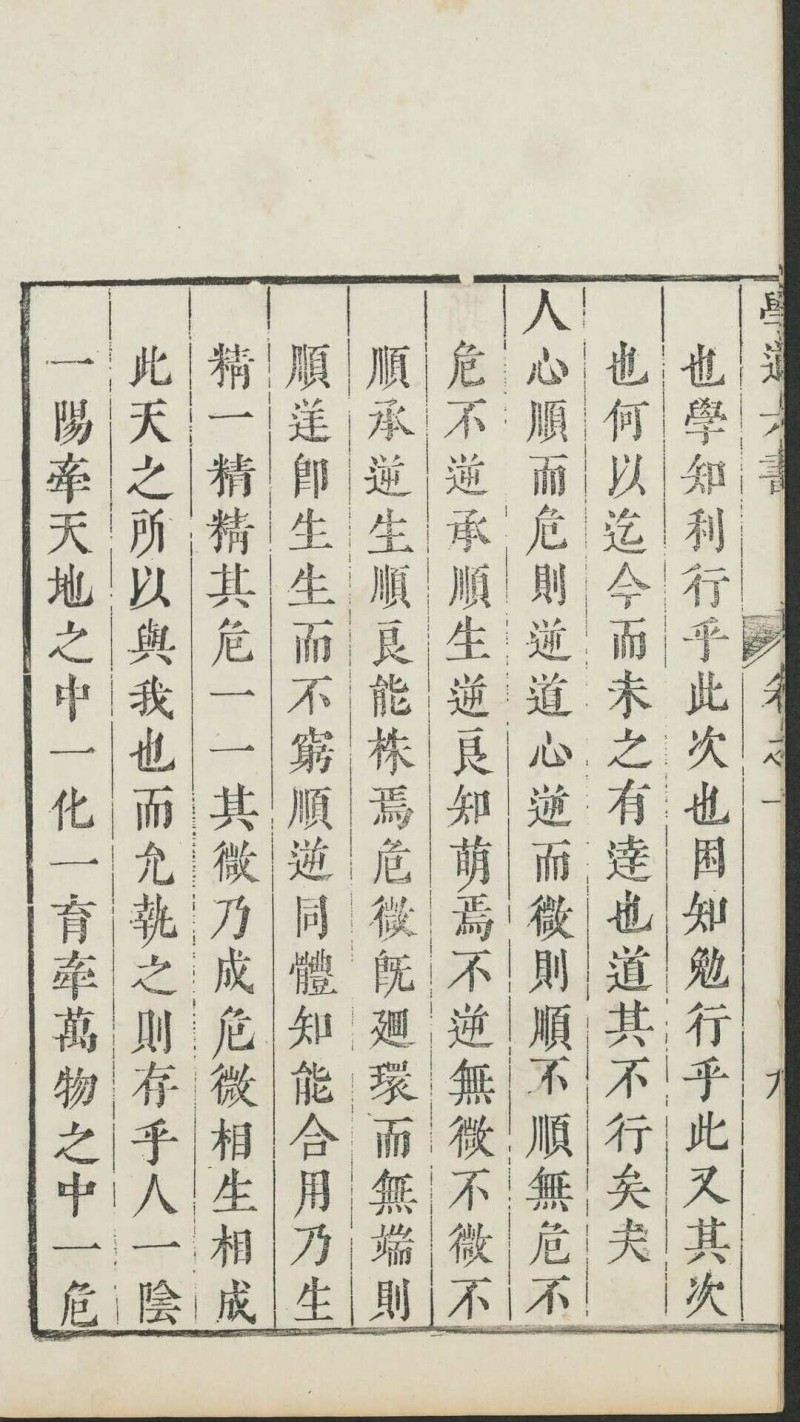 學道六書
卷之一
九
也學知利行乎此次也困知勉行乎此又其次
也何以迄今而未之有逹也道其不行矣夫
人心順而危則逆道心逆而微則順不順無危不
危不逆承順生逆良知萌焉不逆無微不微不
順承逆生順良能株焉危微旣廻環而無端則
順逆卽生生而不窮順逆同體知能合用乃生
精一精精其危一一其微乃成危微相生相成
此天之所以與我也而允執之則存乎人一陰
一陽牽天地之中一化一育牽萬物之中一危